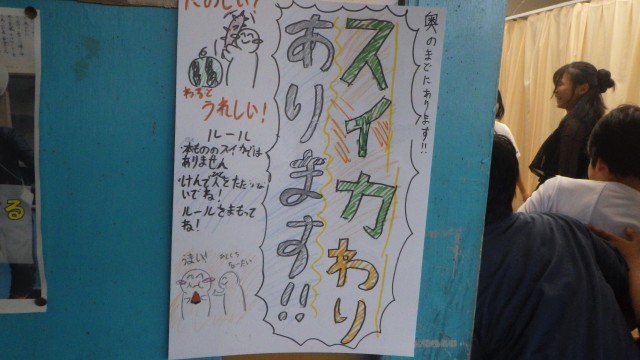 奥のまどにあります!!
スイカわり
あります!!
たのしい!
わると
うれしい!
ルール
・本もののスイカでは
ありません
・けんで人をたたかない
いでね!
ルールをまもって
ね!
うまい!
る